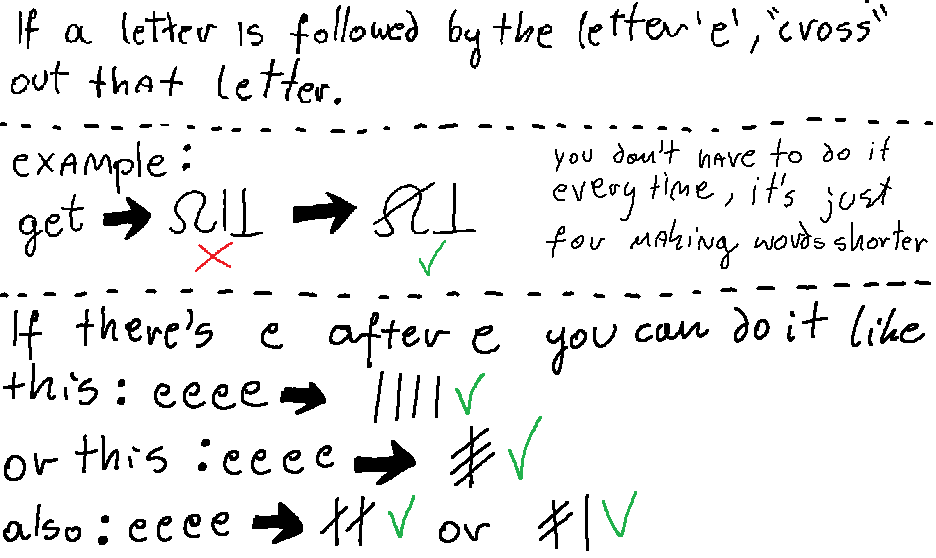 If a letter is followed by the letter 'e', "cross"
out that letter.
example:
get
you don't have to do it
every time, it's just
for making words shorter
If there's e after e you can do it like
this: eeee
or this: eeee
also: eeee or